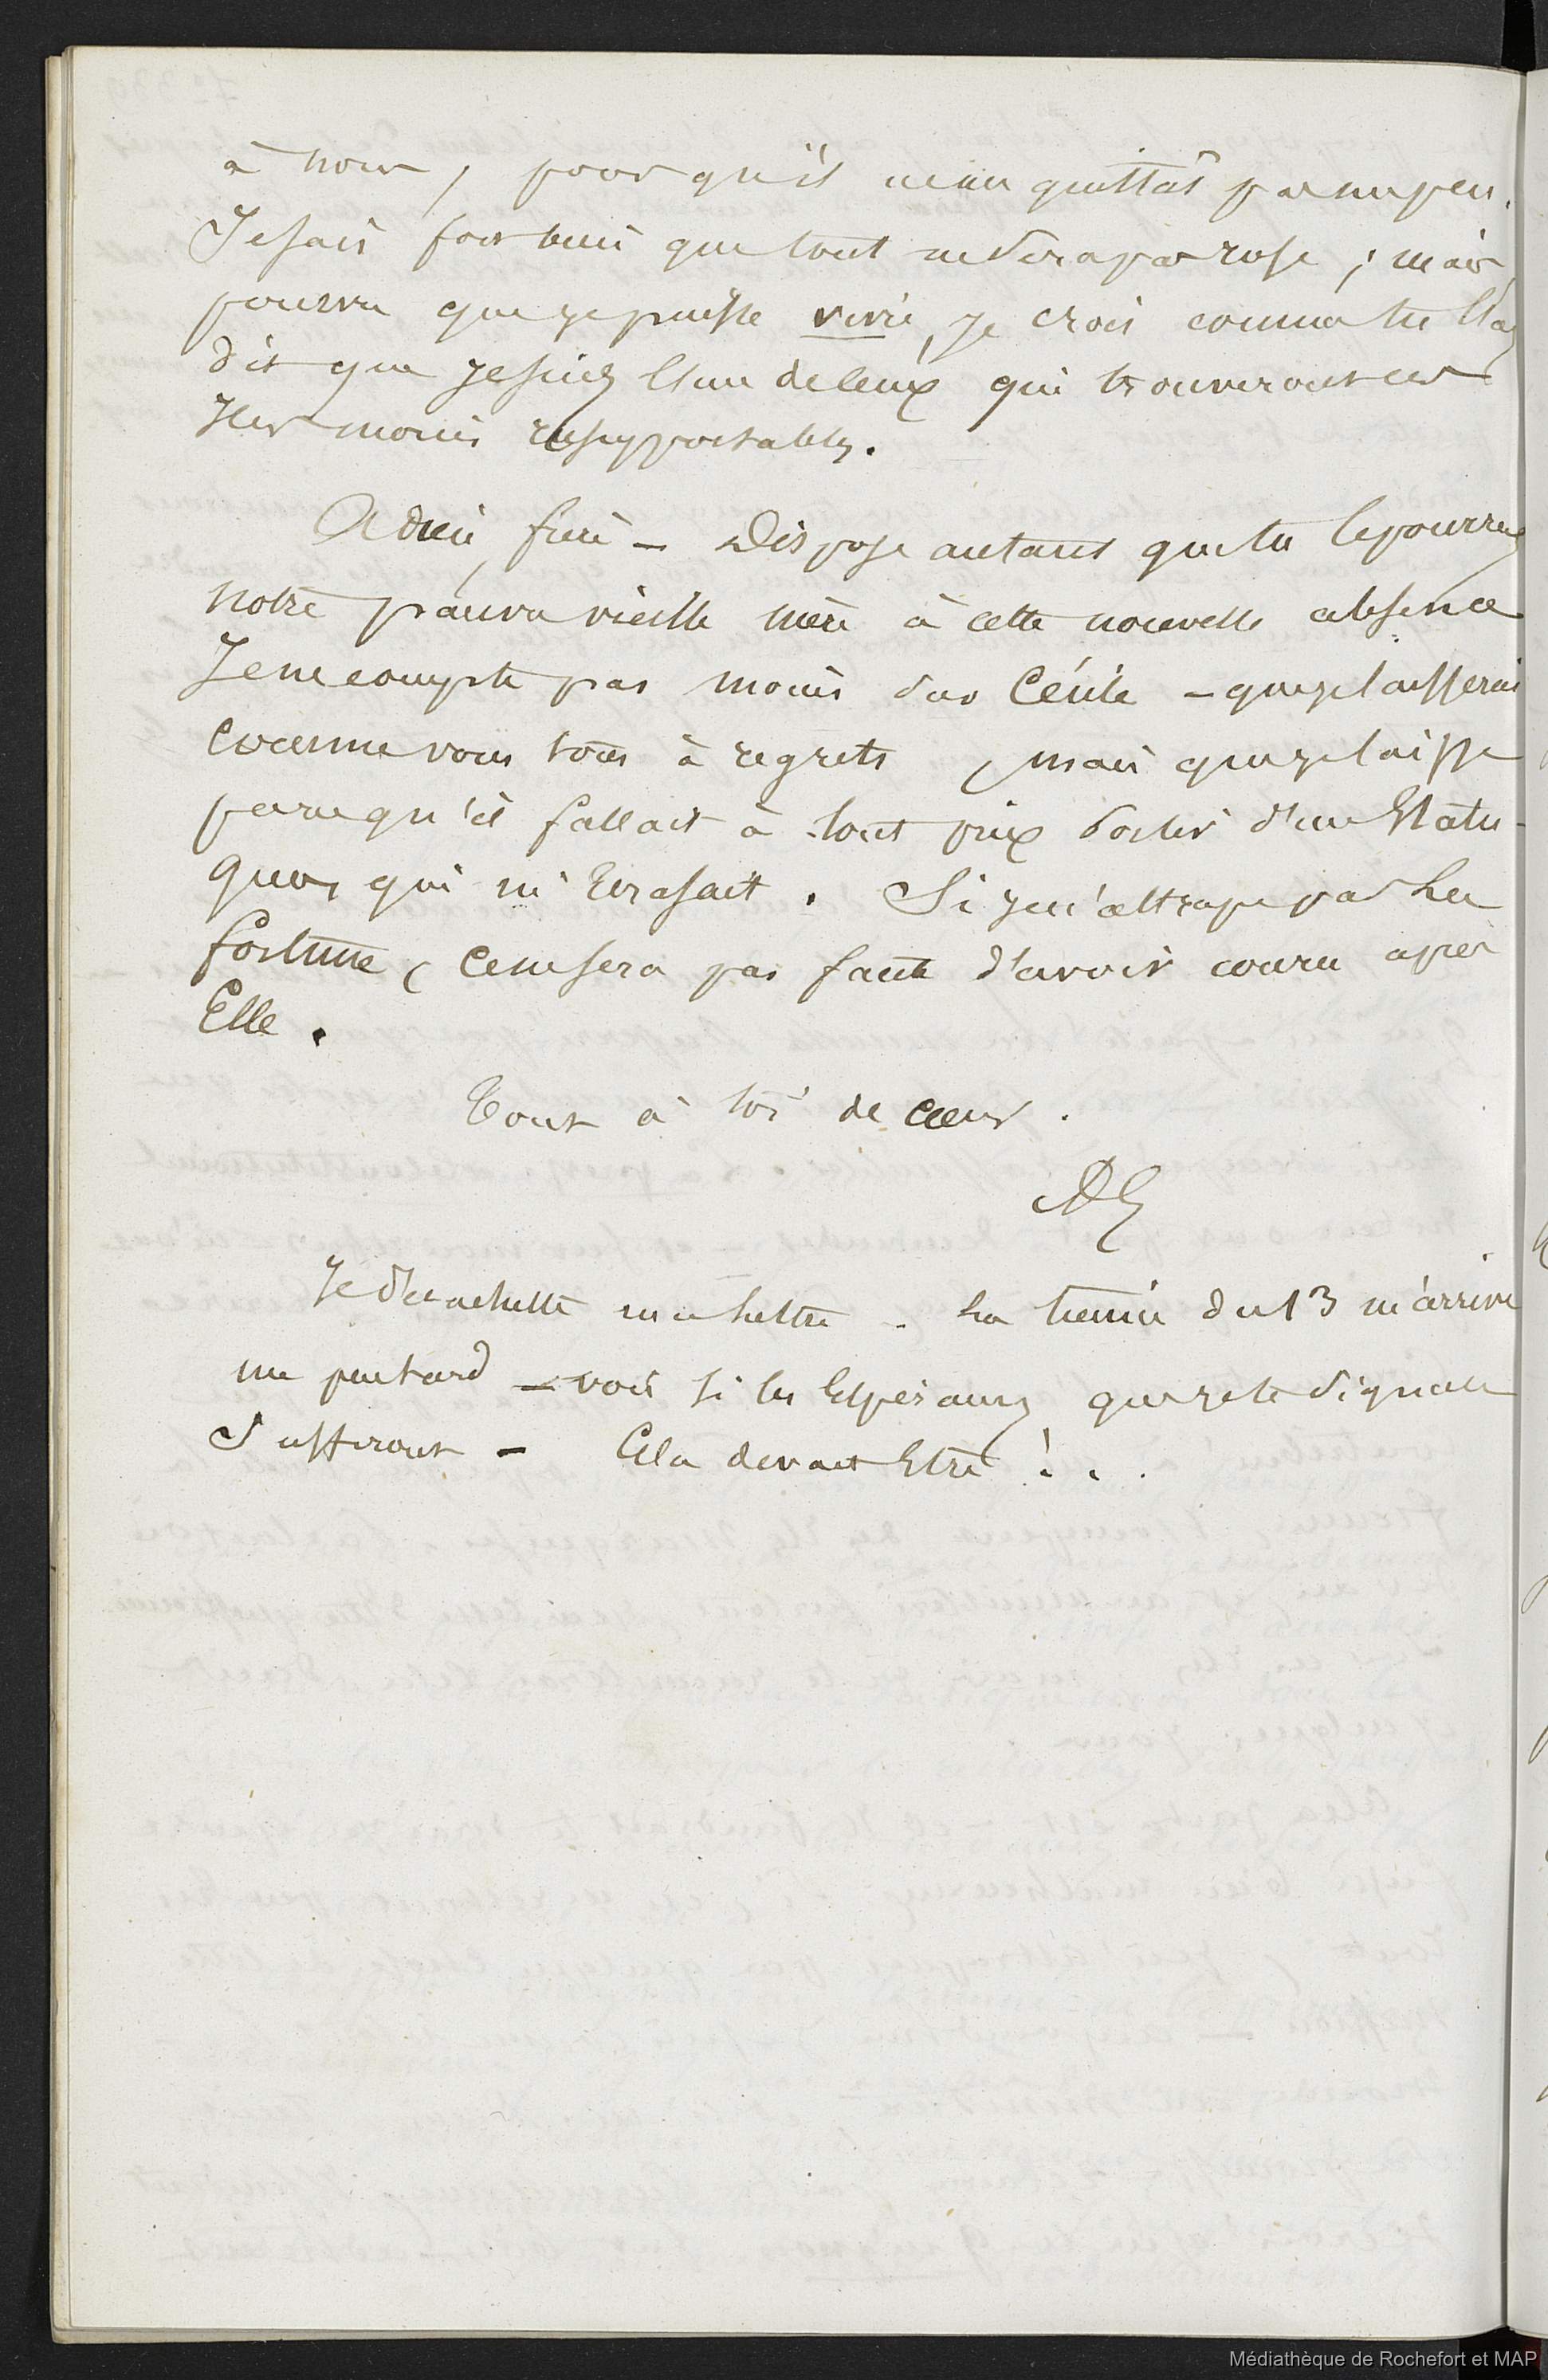 à nous, pour qu'il ne me quittât pas un peu.
Je sais fort bien que tout ne sera pas rose ; mais
pourvu que je puisse vivre, je crois comme tu l'as
dit que je suis l'un de ceux qui trouveront ces
Iles moins insupportables.
Adieu, frère – Dispose autant que tu le pourras
notre pauvre vieille mère à cette nouvelle absence
Je ne compte pas moins sur Cécile – que je laisserai
comme vous tous à regrets, mais que je laisse
parce qu'il fallait à tout prix sortir d'un Statu-
quo qui m'Ecrasait. Si je n'attrape pas la
fortune, ce ne sera pas faute d'avoir couru après
Elle.
Tout à toi de cœur.
Je décachette ma lettre. La tienne du 13 m'arrive
un peu tard – vois si les Espérances que je te signale
Suffiront – Cela devait Etre !..
Médiathèque de Rochefort et MAP